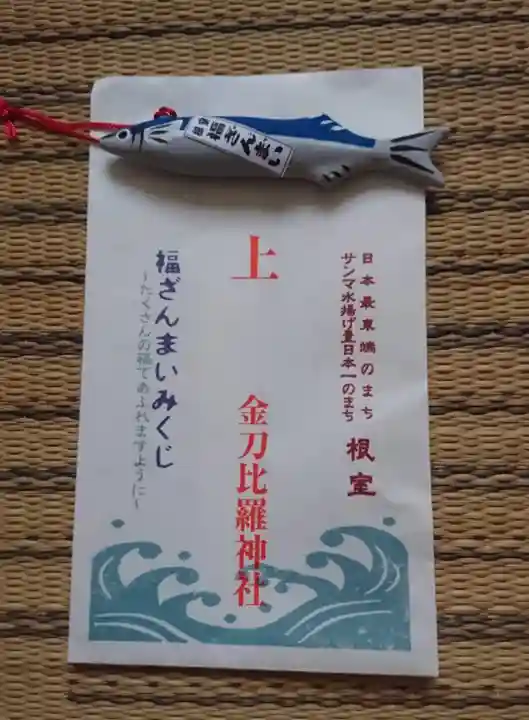 根室
福ざんまい
日本最東端のまち
サンマ水揚げ量日本一のまち
根室
上
金刀比羅神社
福ざんまいみくじ
~たくさんの福であふれますように~